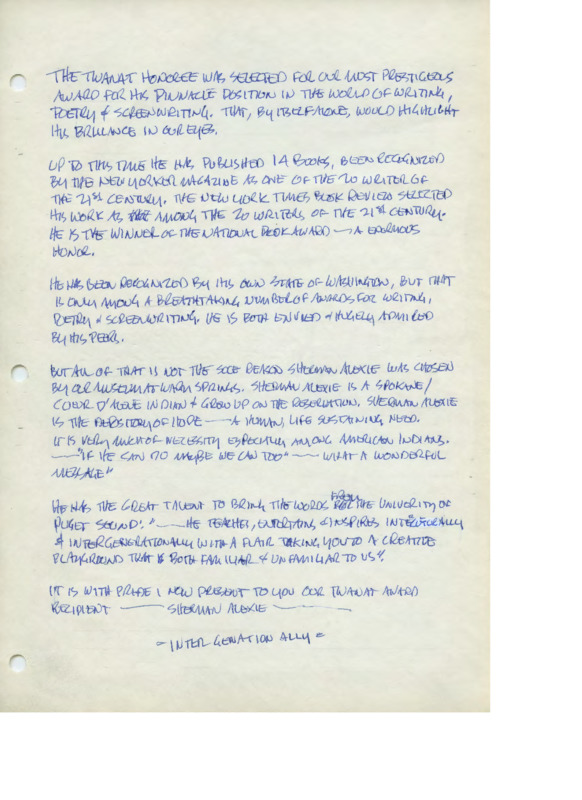 THE TWANAT HONOREE WAS SELECTED FOR OUR MOST PRESTIGEOUS
AWARD FOR HIS PINNACLE POSITION IN THE WORLD OF WRITING,
POETRY & SCREENWRITING. THAT, BY ITSELF ALONE, WOULD HIGHLIGHT
HIS BRILLANCE IN OUR EYES.
UP TO THIS TIME HE HAS PUBLISHED 14 BOOKS, BEEN RECOGNIZED
BY THE NEW YORKER MAGAZINE AS ONE OF THE 20 WRITER OF
THE 21ST CENTURY. THE NEW YORK TIMES BOOK REVIEW SELECTED
HIS WORK AS AMONG THE 20 WRITERS OF THE 21ST CENTURY.
HE IS THE WINNER OF THE NATIONAL BOOK AWARD — A ENORMOUS
HONOR.
HE HAS BEEN RECOGNIZED BY HIS OWN STATE OF WASHINGTON, BUT THAT
IS ONLY AMONG A BREATHTAKING NUMBER OF AWARDS FOR WRITING,
POETRY & SCREENWRITING. HE IS BOTH ENVIED & ADMIRED
BY HIS PEERS.
BUT ALL OF THAT IS NOT THE SOLE REASON SHERMAN ALEXIE WAS CHOSEN
BY OUR MUSEUM AT WARM SPRINGS. SHERMAN ALEXIE IS A SPOKANE/
COEUR D'ALENE INDIAN & GROW UP ON THE RESERVATION. SHERMAN ALEXIE
IS THE REPOSITORY OF HOPE — A HUMAN, LIFE SUSTAINING NEED.
IT IS VERY MUCH OF NECESSITY ESPECIALLY AMONG AMERICAN INDIANS.
— "IF HE CAN DO MAYBE WE CAN TOO" — WHAT A WONDERFUL
MESSAGE"
HE HAS THE GREAT TALENT TO BRING THE WORDS FROM THE UNIVERITY OF
PUGET SOUND: " — HE TEACHES, ENTERTAINS & INSPIRES INTERCULTURALLY
& INTERGENERATIONALLY WITH A FLAIR TAKING YOU TO A CREATIVE
PLAYGROUND THAT IS BOTH FAMILIAR & UNFAMILIAR TO US".
IT IS WITH PRIDE I NOW PRESENT TO YOU OUR TWANAT AWARD
RECIPIENT — SHERMAN ALEXIE —
= INTER GENATION ALLY =